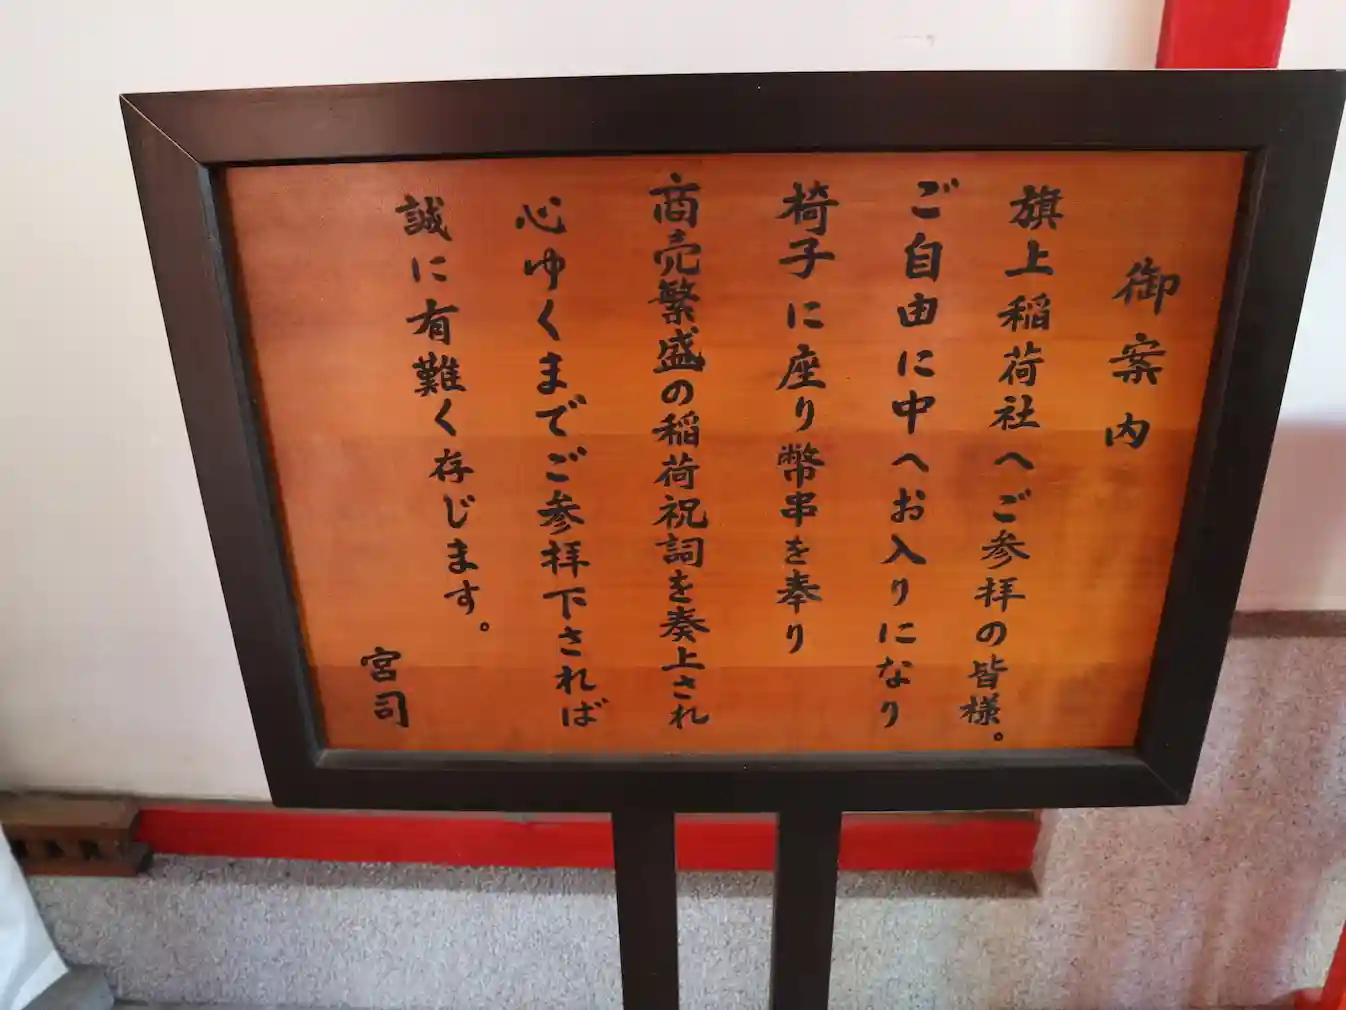 御案内
旗上稲荷社へご参拝の皆様。
ご自由に中へお入りになり
椅子に座り幣串を奉り
商売繁盛の稲荷祝詞を奏上され
心ゆくまでご参拝下されば
誠に有難く存じます。
宮司